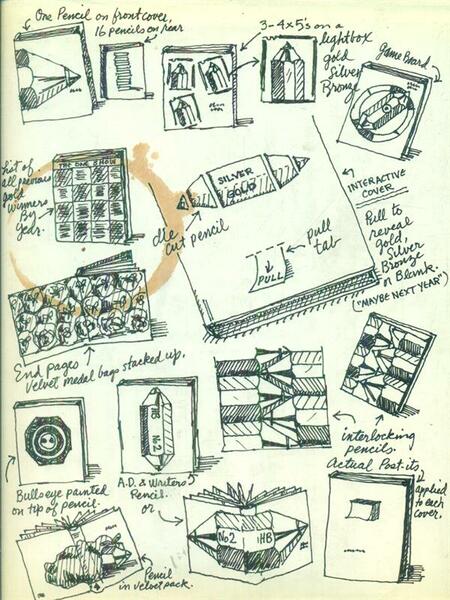 One Pencil on front cover,
16 pencils on rear
3-4x5's on a
lightbox
gold
Silver
Bronze
Game Board
List of
all previous
gold
Winners
By
Year.
THE ONE SHOW
SILVER
GOLD
die
cut pencil
pull
tab
PULL
INTERACTIVE
COVER
Pull to
reveal
gold,
Silver
Bronze
or Blank.
("MAYBE NEXT YEAR")
End pages
Velvet medal bags stacked up.
interlocking
pencils.
HB
No2
Bullseye painted
on tip of pencil.
A.D. & Writers
Pencil.
or
No2
HB
Actual Post-its
applied
to each
cover.
Pencil
in velvet pack.